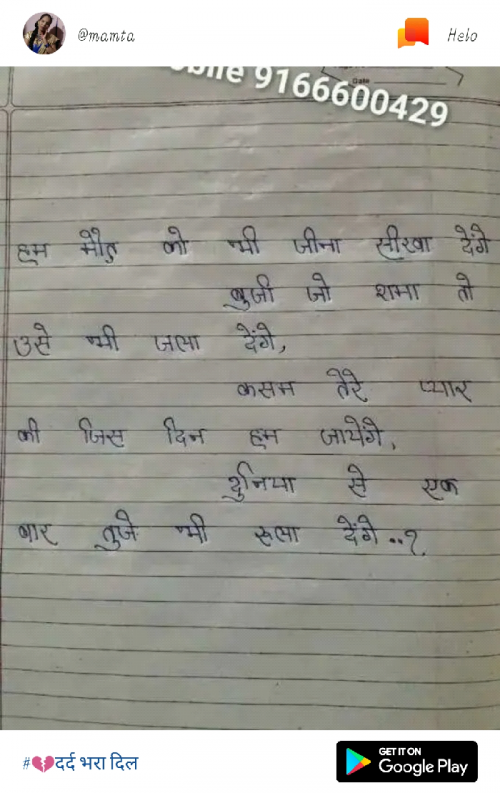 @mamta
Helo
Date
9166600429
हम मौत को भी जीना सीखा देंगे
बुजी जो शमा तो
उसे भी जला देंगे,
कसम तेरे प्यार
की जिस दिन हम जायेंगे,
दुनिया से एक
बार तुजे भी रूला देंगे..?
#💔दर्द भरा दिल
GET IT ON
Google Play